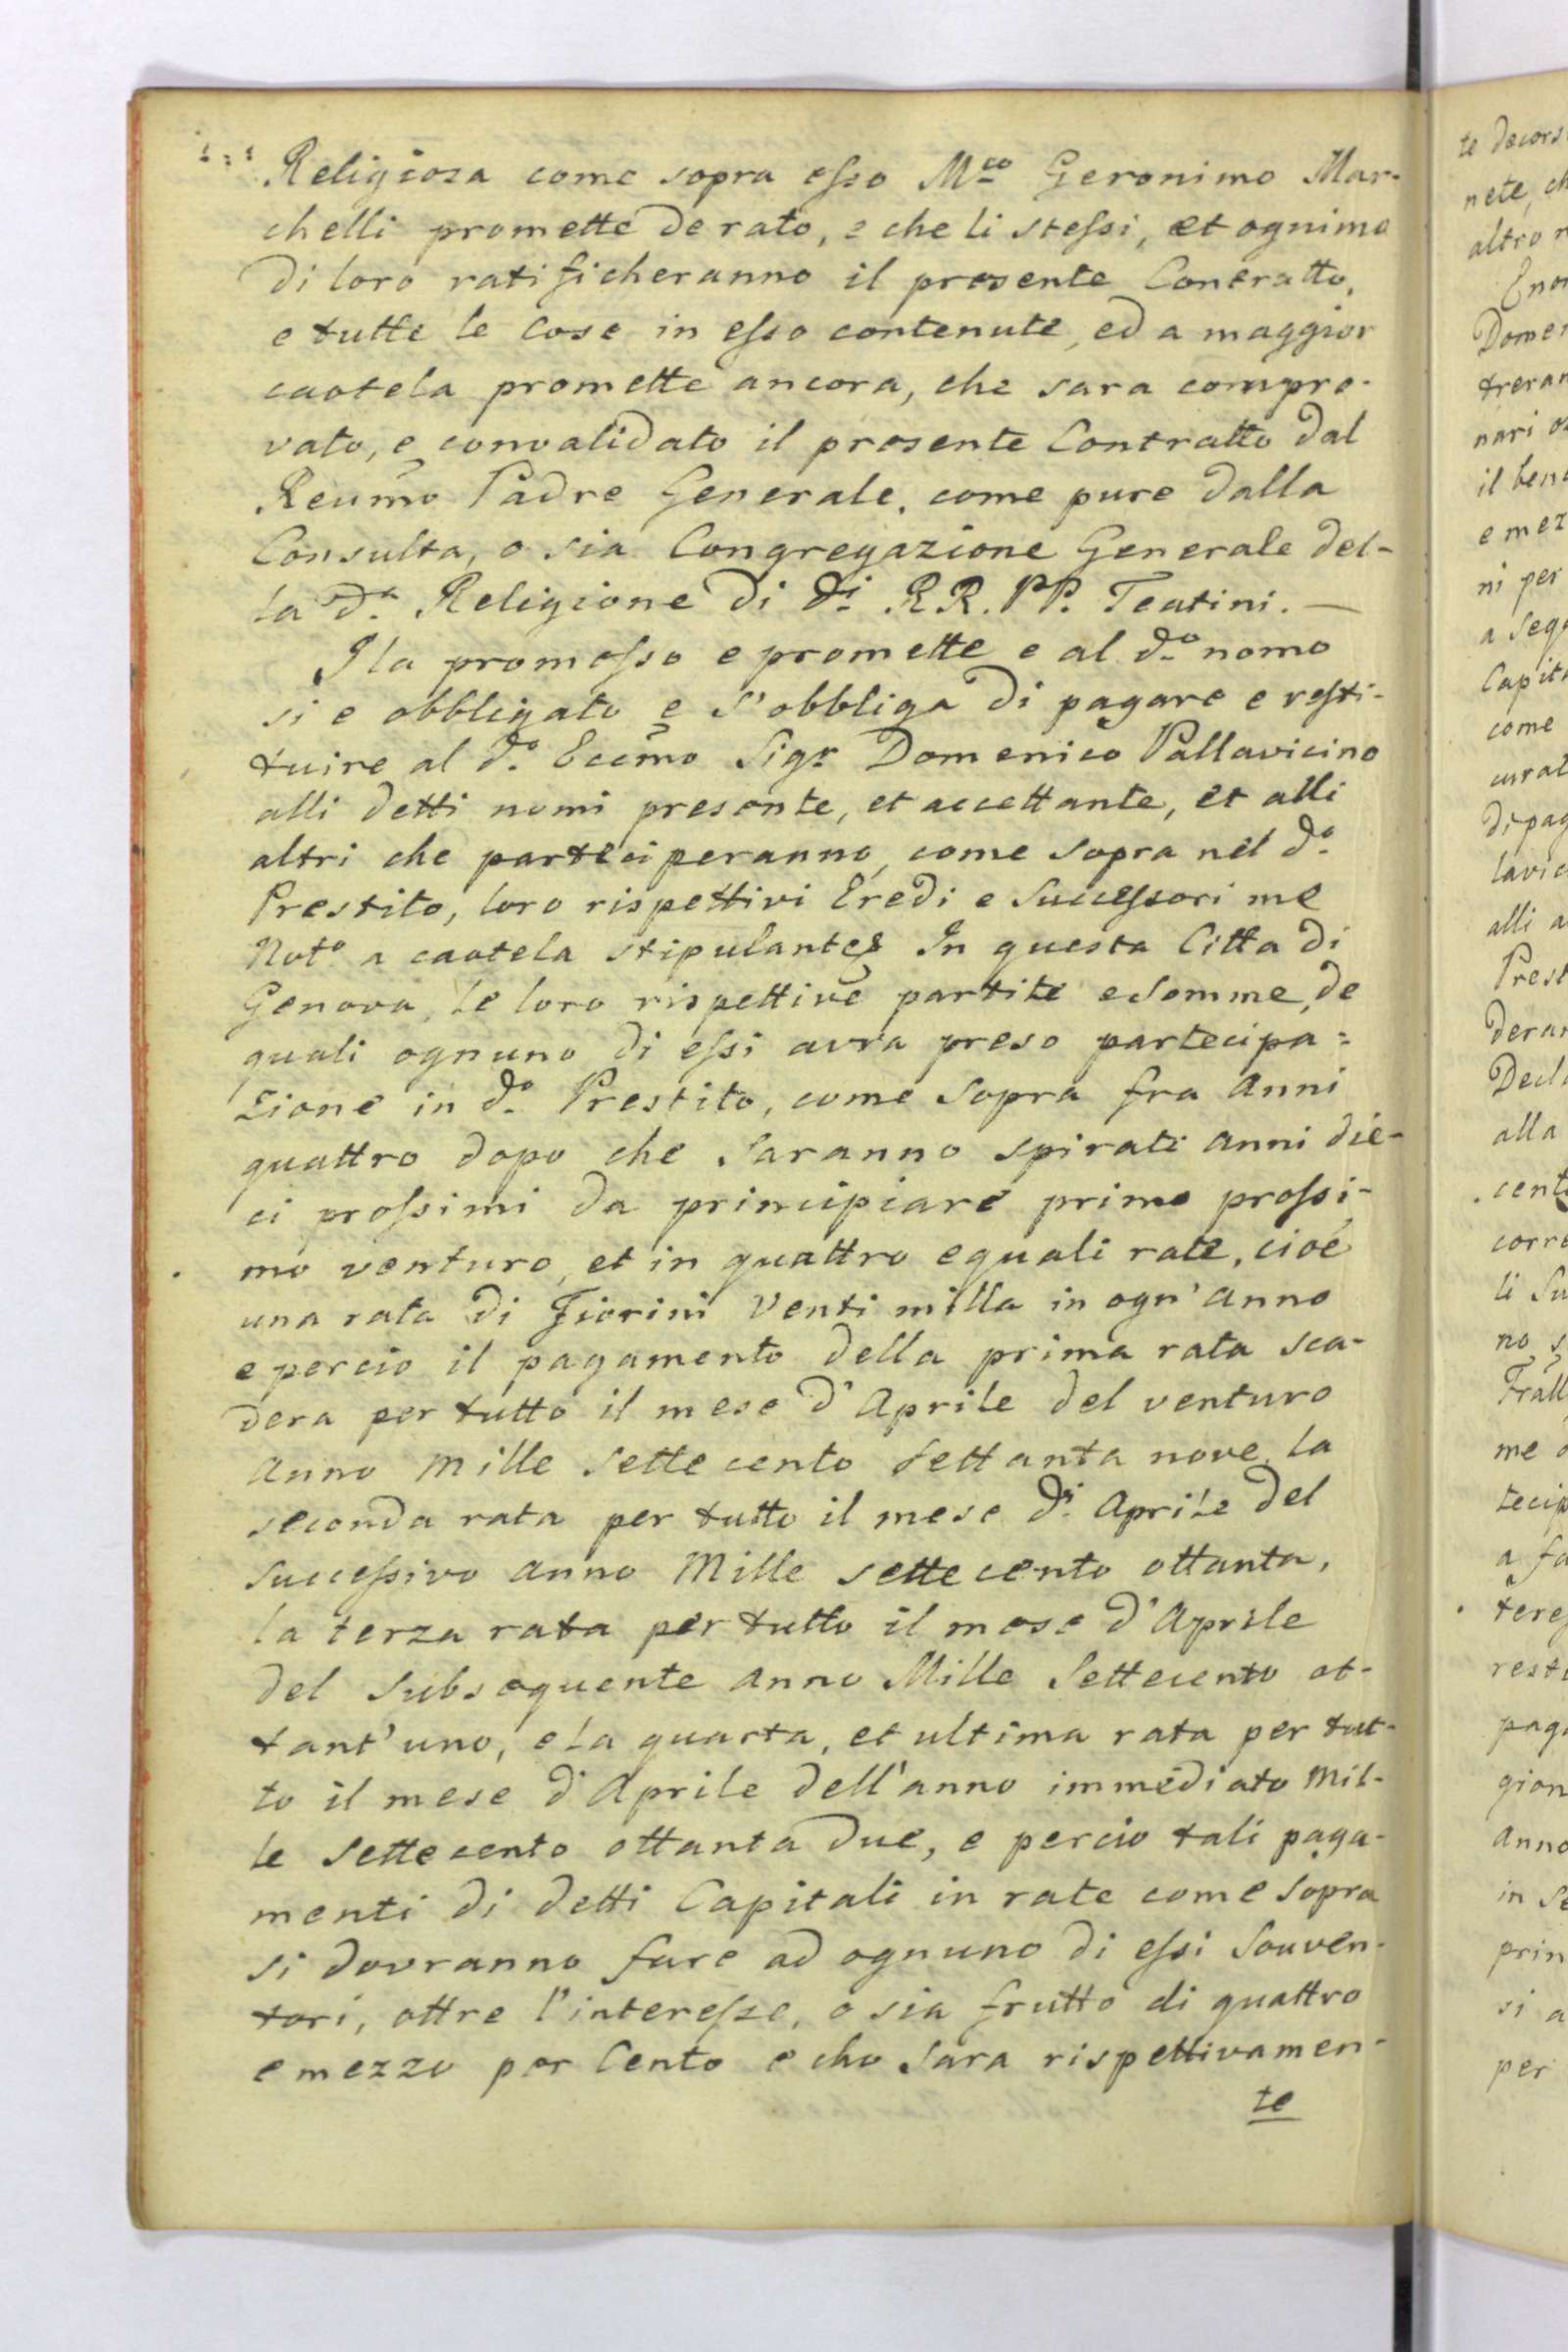 Religiosa come sopra esso M.co Geronimo Mar-
chelli promette de rato, e che li stessi, et ognimo
di loro ratificheranno il presente Contratto,
e tutte le Cose in esso contenute, ed a maggior
caotela promette ancora, che sara compro-
vato, e convalidato il presente Contratto dal
Reumo Padre Generale, come pure dalla
Consulta, o sia Congregazione Generale del-
la d.a Religione di d.i RR. PP. Teatini. —
Ila promosso e promette e al d.o nomo
si e obbligato e s'obbliga di pagare e resti-
tuire al d.o Eccmo Sigr Domenico Pallavicino
alli detti nomi presente, et accettante, et alli
altri che parteciperanno, come sopra nel d.o
Prestito, loro rispettivi Eredi e Successori me
Not.o a caotela stipulante In questa Citta di
Genova, le loro rispettive partite e somme, de
quali ognuno di essi avra preso partecipa=
zione in d.o Prestito, come sopra fra anni
quattro dopo che saranno spirati anni die-
ci prossimi da principiare primo prossi-
mo venturo, et in quattro equali rate, cioé
una rata di Fiorini Venti milla in ogn'anno
e percio il pagamento della prima rata sca-
dera per tutto il mese d'Aprile del venturo
anno Mille Sette cento settanta nove, la
seconda rata per tutto il mese di Aprile del
successivo anno Mille sette cento ottanta,
la terza rata per tutto il mese d'Aprile
del subsequente anno Mille Settecento ot-
tant'uno, e la quarta, et ultima rata per tut-
to il mese d'Aprile dell'anno immediato Mil-
le Sette cento ottanta due, e percio tali paga-
menti di detti Capitali in rate come sopra
si dovranno fare ad ognuno di essi Souven-
tori, oltre l'interesse, o sia frutto di quattro
e mezzo per Cento e cho sara rispettivamen-
te
te decors
nete, ch
altro
Domen
treran
nari
il bene
e mez
ni per
a seg
Capit
come
curat
di pag
lavic
alli a
Prest
deran
Decl
alla
cent
corr
li Su
no
Frall
me
tecip
a fa
rest
pag
gion
Anno
in Se
prin
si a
per